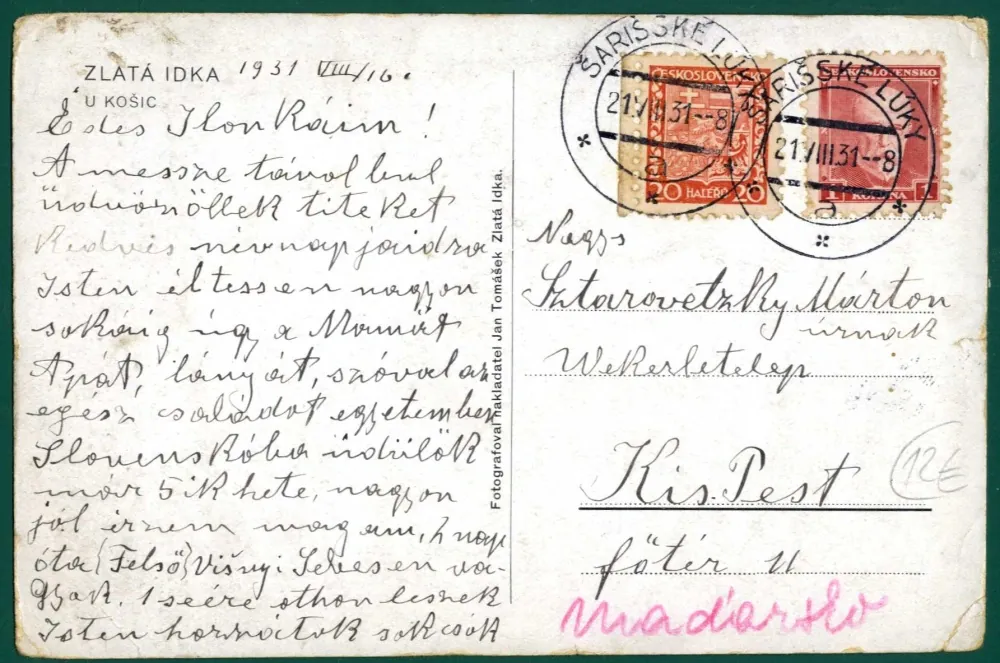 ZLATÁ IDKA 1931 VIII/16.
U KOŠIC
Édes Ilonkáim!
A messze távolbul
üdvözöllek titeket
Kedves névnapjaidra
Isten éltessen nagyon
sokáig úgy a Mamát
Apát, lányát, szóval az
egész családot egyetemben
Slovenskóba üdülök
már 5ik hete, nagyon
jól érzem magam, 2 nap
óta (Felső) Višnyi Sebesen va-
gyok. 1 seére othon leszek
Isten hozzátok sok csók
Fotografoval nakladatel Jan Tomášek Zlatá Idka.
ŠARIŠSKÉ LÚKY
21.VIII.31--8
a
ČESKOSLOVENSKO
20 HALÉŘŮ 20
ŠARIŠSKÉ LÚKY
21.VIII.31--8
a
ČESKOSLOVENSKO
1 KORUNA 1
Nagys
Sztarovetzky Márton
úrnak
Wekerletelep
KisPest
főtér 11
Madarsko
12€